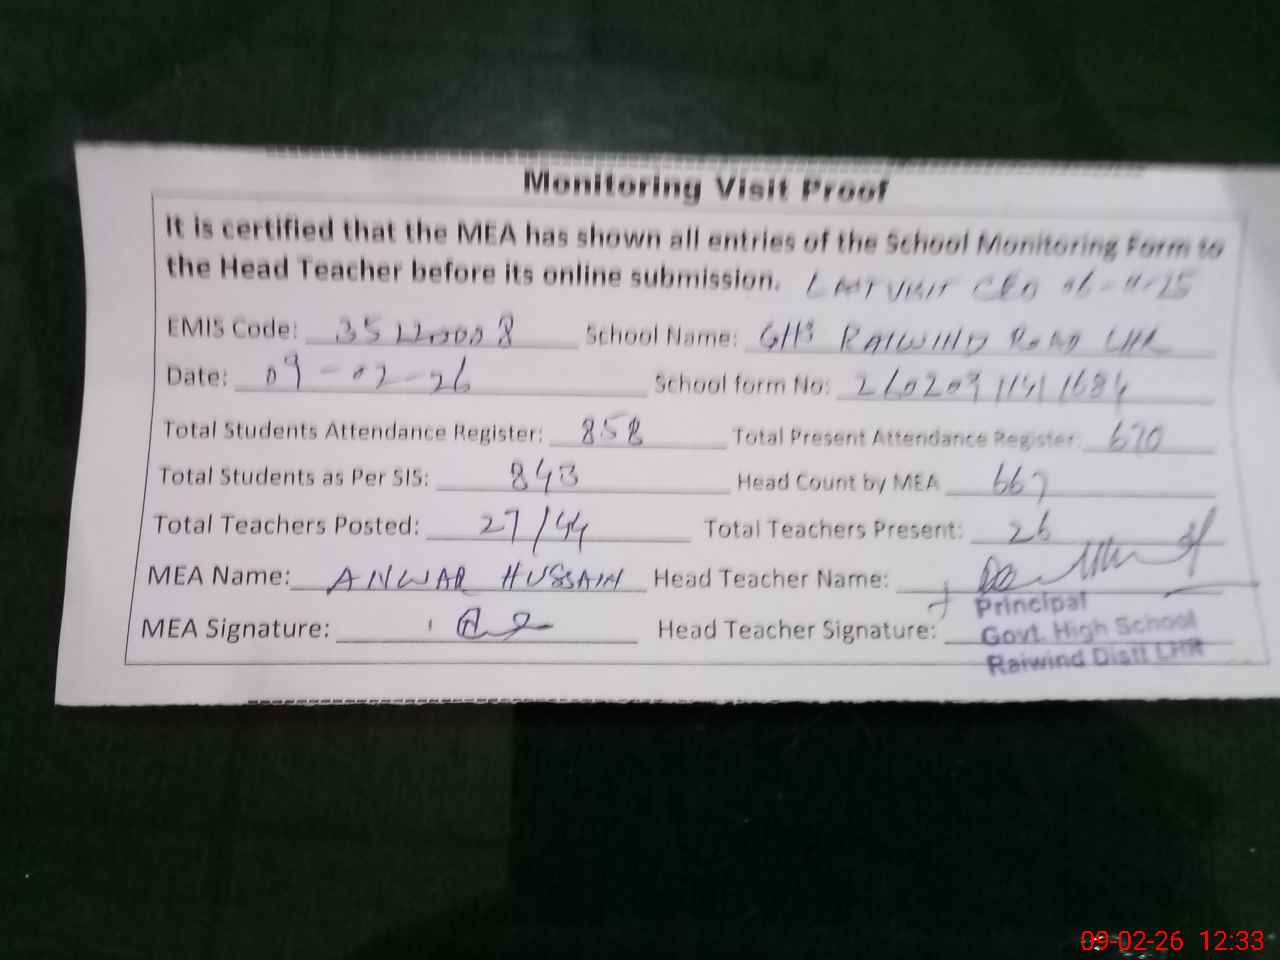 Monitoring Visit Proof
It is certified that the MEA has shown all entries of the School Monitoring Form to
the Head Teacher before its online submission. LAST VISIT CEO 06-11-25
EMIS Code: 35120008 School Name: GHS RAIWIND ROAD LHR
Date: 09-02-26 School form No:
Total Students Attendance Register: 858 Total Present Attendance Register: 670
Total Students as Per SIS: 843 Head Count by MEA 667
Total Teachers Posted: 27/44 Total Teachers Present: 26
MEA Name: ANWAR HUSSAIN Head Teacher Name:
MEA Signature: Head Teacher Signature:
Principal
Govt. High School
Raiwind Distt LHR
09-02-26 12:33